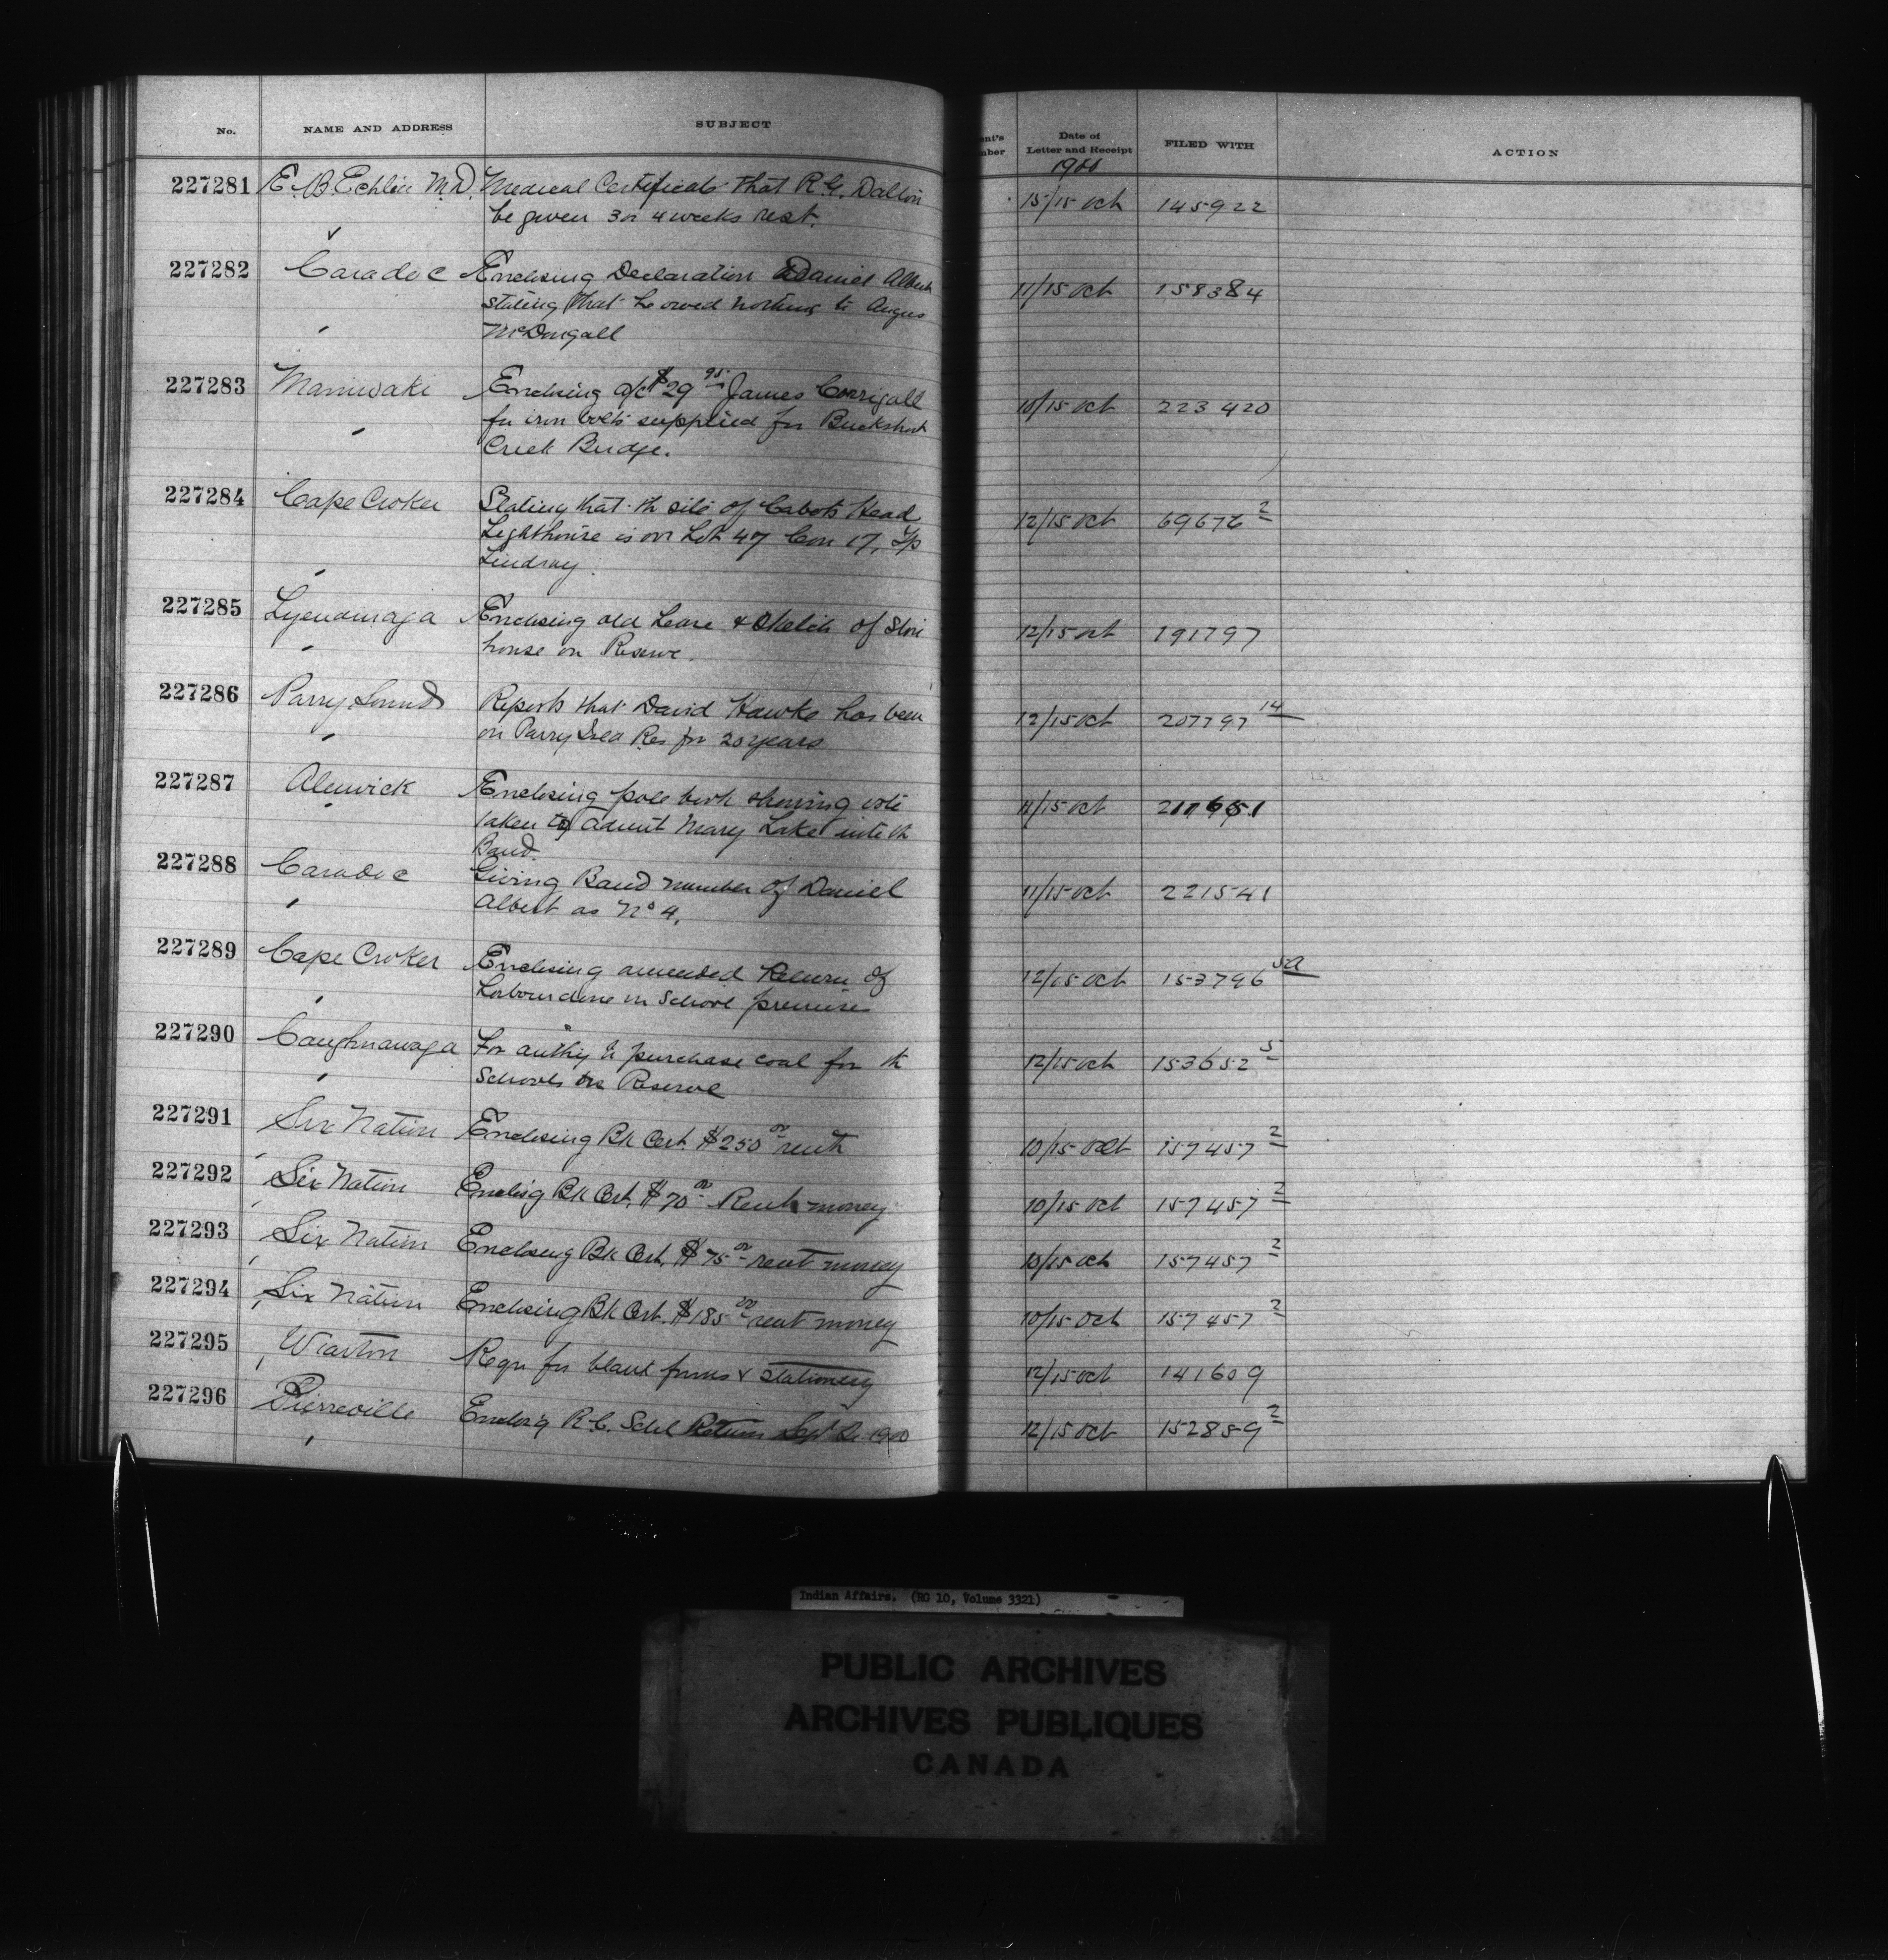 No. NAME AND ADDRESS SUBJECT ent's mber Date of Letter and Receipt FILED WITH ACTION
1900
227281 E. B Echlin M.D. Medical Certificate that R. G. Dalton 15/15 Oct 145922
be given 3 or 4 weeks rest.
227282 Caradoc Enclosing Declaration Daniel Albert 11/15 Oct 158384
stating that he owed nothing to Angus
McDougall
227283 Maniwaki Enclosing a/c $29 95 James Corrigall 10/15 Oct 223420
for iron bolts supplied for Buckshot
Creek Bridge.
227284 Cape Croker Stating that th site of Cabots Head 12/15 Oct 69676 2
Lighthouse is on Lot 47 Con 17, Tp
Lindsay
227285 Tyendinaga Enclosing old Lease & Sketch of Stone 12/15 Oct 191797
house on Reserve.
227286 Parry Sound Reports that David Hawke has been 12/15 Oct 207797 14
on Parry Isld Res for 20 years
227287 Alnwick Enclosing pole book showing vote 11/15 Oct
taken to admit Mary Lake into th
Band.
227288 Caradoc Giving Band number of Daniel 11/15 Oct 221541
Albert as No 4.
227289 Cape Croker Enclosing amended Return of 12/15 Oct 153796 5a
Labour done on School premises
227290 Caughnawaga For authy to purchase coal for th 12/15 Oct 153652 5
Schools on Reserve
227291 Six Nation Enclosing Bk Cert. $250 00 rent 10/15 Oct 157457 2
227292 Six Nation Enclosg Bk Cert. $70 00 Rent money 10/15 Oct 157457 2
227293 Six Nation Enclosing Bk Cert. $75 00 rent money 10/15 Oct 157457 2
227294 Six Nation Enclosing Bk Cert. $185 00 rent money 10/15 Oct 157457 2
227295 Wiarton Reqn for blank forms & Stationery 12/15 Oct 141609
227296 Pierreville Enclosg R.C. Schl Return Sept Qr 1900 12/15 Oct 152859 2
Indian Affairs. (RG 10, Volume 3321)
PUBLIC ARCHIVES
ARCHIVES PUBLIQUES
CANADA